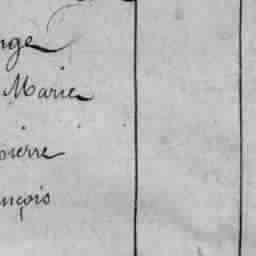 nge
Marie
pierre
nçois